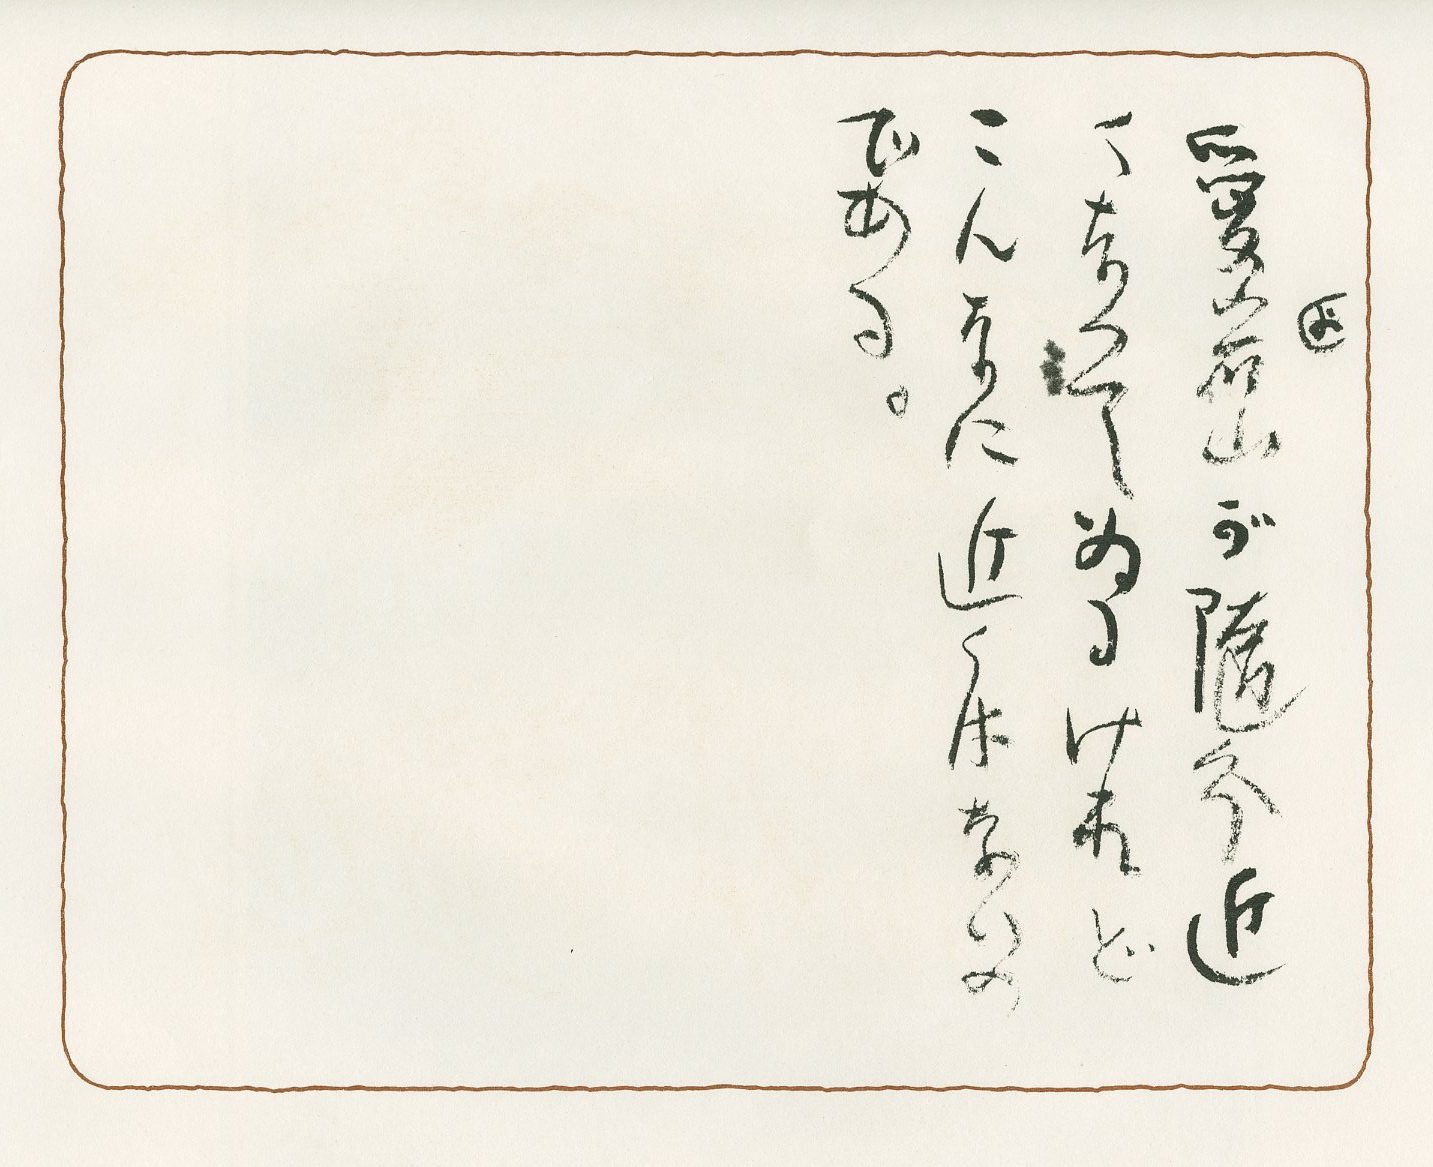 愛宕山が隨分近
くなつてゐるけれど
こんなに近くはないの
である。